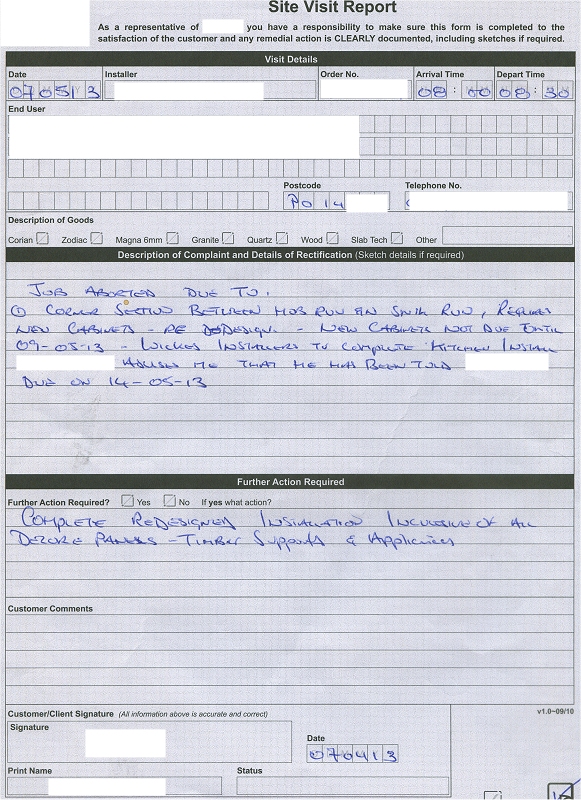 Site Visit Report
As a representative of you have a responsibility to make sure this form is completed to the
satisfaction of the customer and any remedial action is CLEARLY documented, including sketches if required.
Visit Details
Date Installer Order No. Arrival Time Depart Time
070513 08:00 08:30
End User
Postcode Telephone No.
PO14
Description of Goods
Corian Zodiac Magna 6mm Granite Quartz Wood Slab Tech Other
Description of Complaint and Details of Rectification (Sketch details if required)
JOB ABORTED DUE TO.
① CORNER SECTION BETWEEN HOB RUN SINK RUN, REQUIRES
NEW CABINETS - RE DESIGN - NEW CABINETS NOT DUE UNTIL
09-05-13 - WICKES INSTALLERS TO COMPLETE KITCHEN INSTALL
ADVISES ME THAT HE HAS BEEN TOLD
DUE ON 14-05-13
Further Action Required
Further Action Required? Yes No If yes what action?
COMPLETE REDESIGNED INSTALLATION INCLUSIVE OF ALL
DECORE PANELS - TIMBER Supports & Appliances
Customer Comments
v1.0–09/10
Customer/Client Signature (All information above is accurate and correct)
Signature
Date
070413
Print Name Status